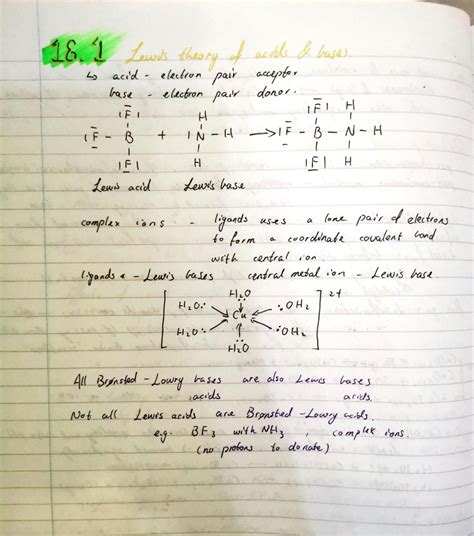 18.1 Lewis theory of acids & bases.
↳ acid - electron pair acceptor
base - electron pair donor.
|F| H H
|F - B + |N - H → |F - B - N - H
|F| H |F| H
Lewis acid Lewis base
complex ions - ligands uses a lone pair of electrons
to form a coordinate covalent bond
with central ion.
ligands - Lewis bases central metal ion - Lewis base.
H₂O
H₂O: :OH₂ 2+
Cu
H₂O: :OH₂
H₂O
All Brønsted-Lowry bases are also Lewis bases
acids acids.
Not all Lewis acids are Brønsted-Lowry acids
e.g. BF₃ with NH₃, complex ions.
(no protons to donate)